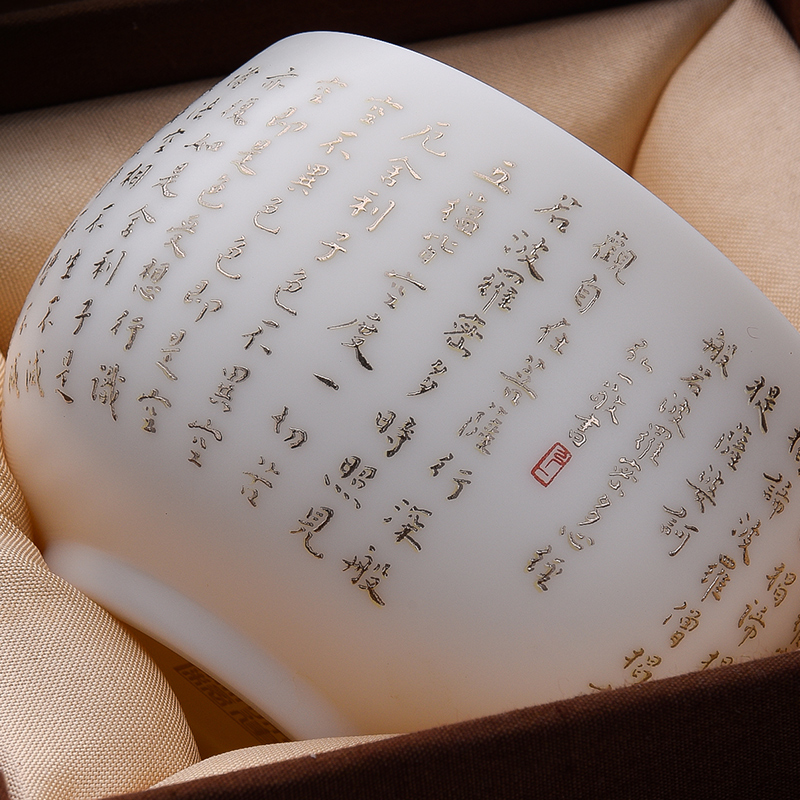 諦波羅僧揭
提薩婆訶
般若波羅蜜多心經
弘一敬書
觀自在菩薩行深般
若波羅蜜多時照見
五蘊皆空度一切苦
厄舍利子色不異空
空不異色色即是空
空即是色受想行識
亦復如是舍利子是
諸法空相不生不滅